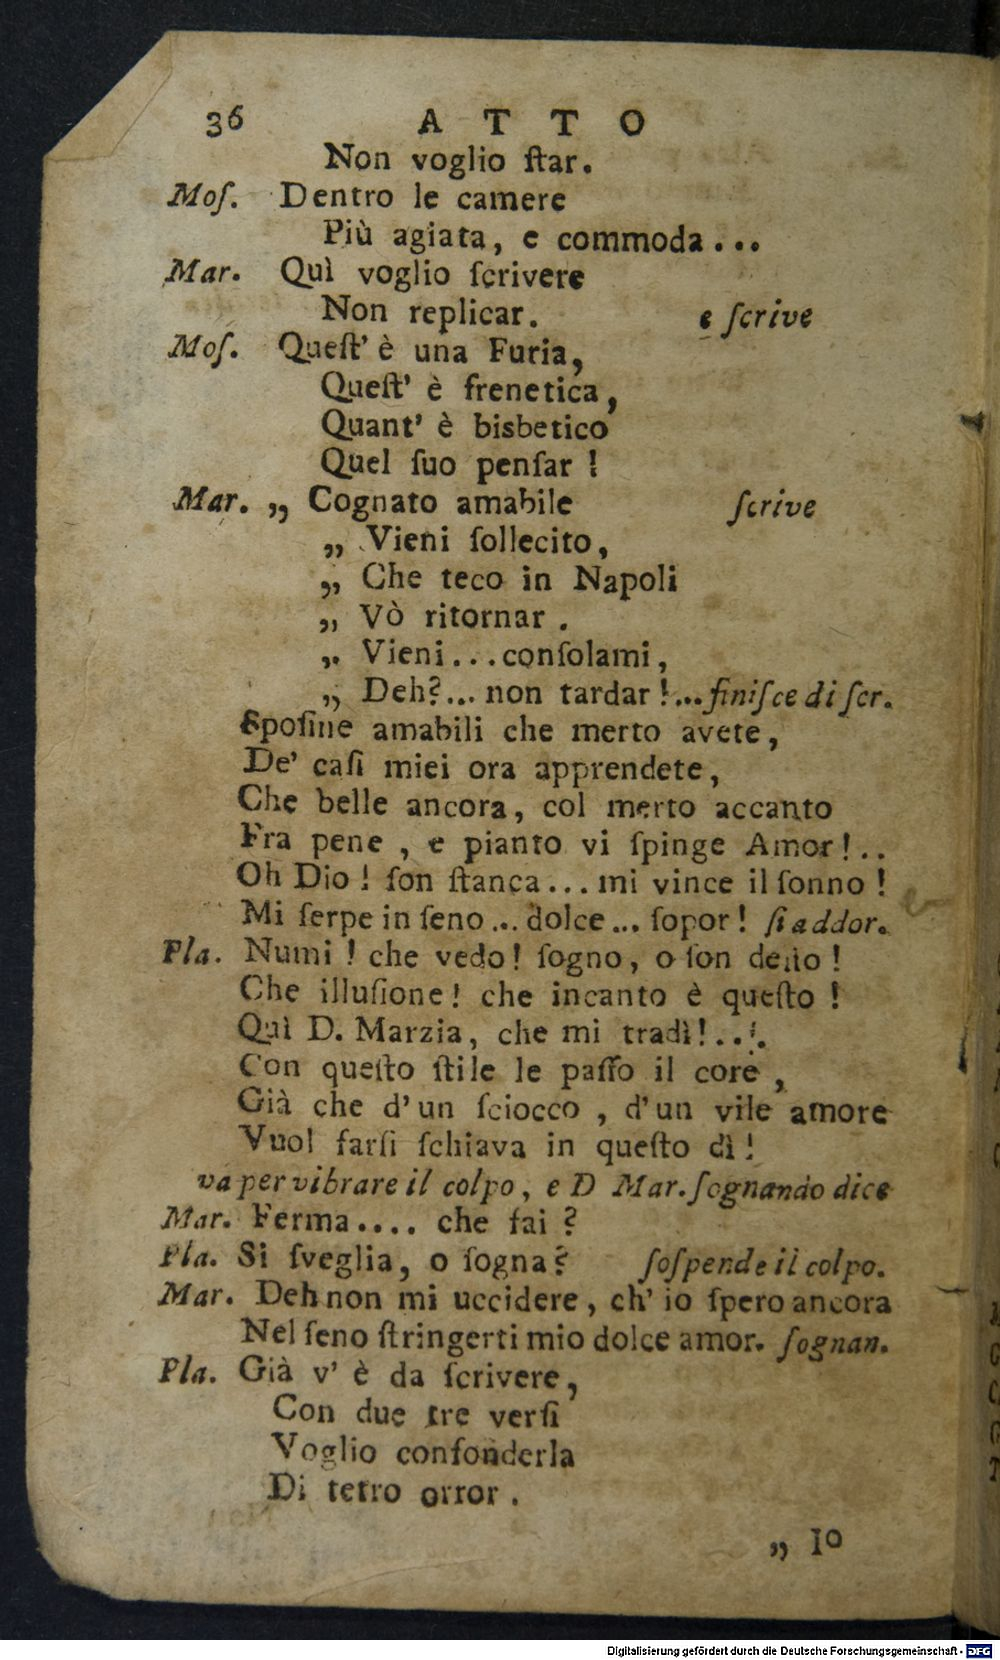 36 A T T O
Non voglio ſtar.
Moſ. Dentro le camere
Più agiata, e commoda...
Mar. Quì voglio ſcrivere
Non replicar. e ſcrive
Moſ. Queſt' è una Furia,
Queſt' è frenetica,
Quant' è bisbetico
Quel ſuo penſar !
Mar. „ Cognato amabile ſcrive
„ Vieni ſollecito,
„ Che teco in Napoli
„ Vò ritornar .
„ Vieni...conſolami,
„ Deh?... non tardar !...finiſce di ſcr.
Spoſine amabili che merto avete,
De' caſi miei ora apprendete,
Che belle ancora, col merto accanto
Fra pene , e pianto vi ſpinge Amor!..
Oh Dio ! ſon ſtanca... mi vince il ſonno !
Mi ſerpe in ſeno ... dolce... ſopor ! ſi addor.
Pla. Numi ! che vedo! ſogno, o ſon deſto !
Che illuſione! che incanto è queſto !
Quì D. Marzia, che mi tradì!...
Con queſto ſtile le paſſo il core ,
Già che d'un ſciocco , d'un vile amore
Vuol farſi ſchiava in queſto dì !
va per vibrare il colpo, e D Mar. ſognando dice
Mar. Ferma.... che fai ?
Pla. Si ſveglia, o ſogna? ſoſpende il colpo.
Mar. Deh non mi uccidere, ch' io ſpero ancora
Nel ſeno ſtringerti mio dolce amor. ſognan.
Pla. Già v' è da ſcrivere,
Con due tre verſi
Voglio confonderla
Di tetro orror .
„ Io
Digitalisierung gefördert durch die Deutsche Forschungsgemeinschaft - DFG